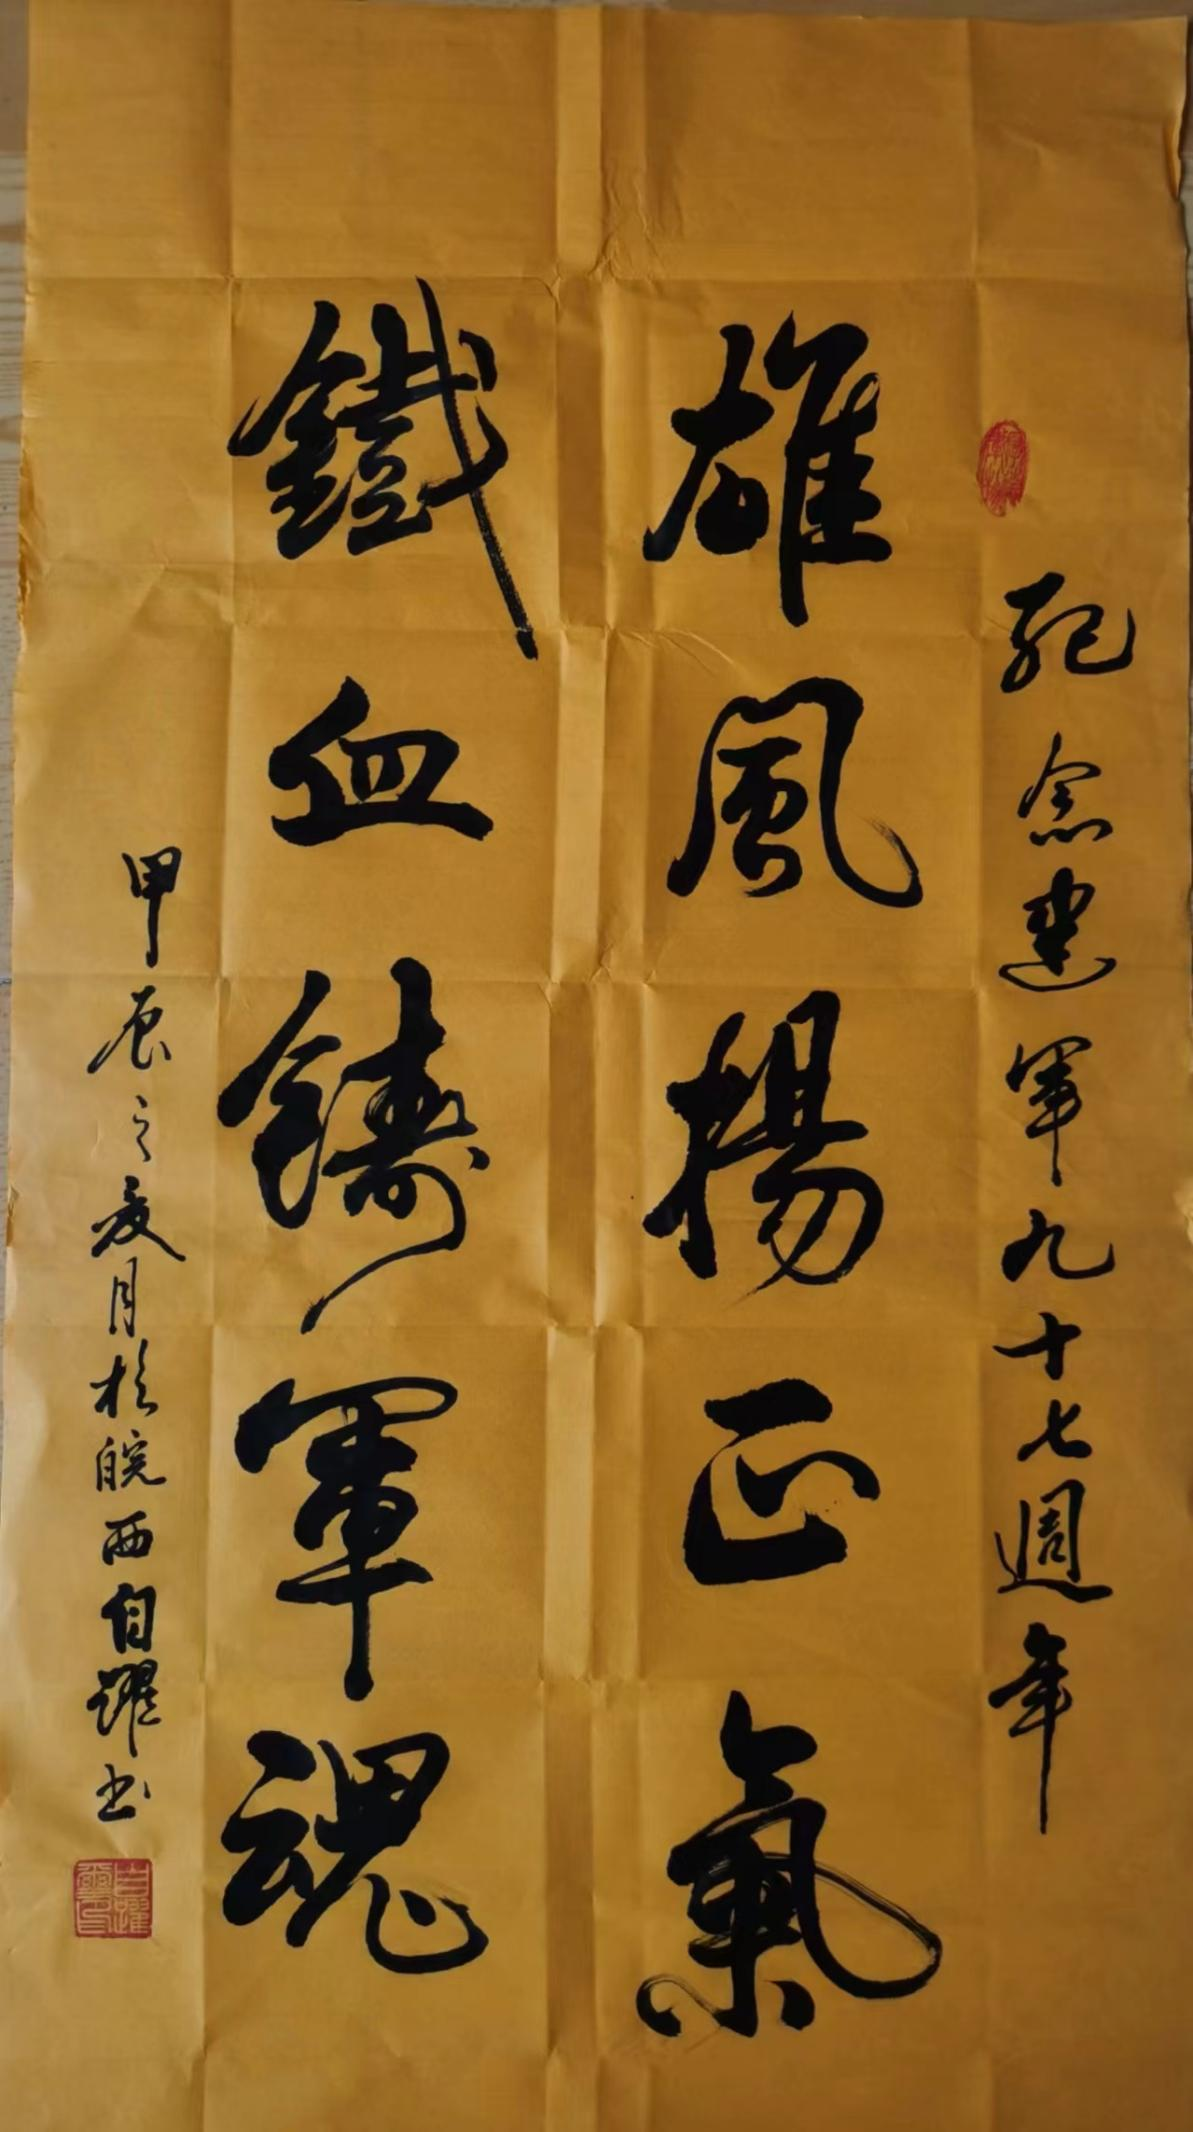 紀念建军九十七週年
雄風揚正氣
鐵血鑄軍魂
甲辰之夏月於皖西自躍书